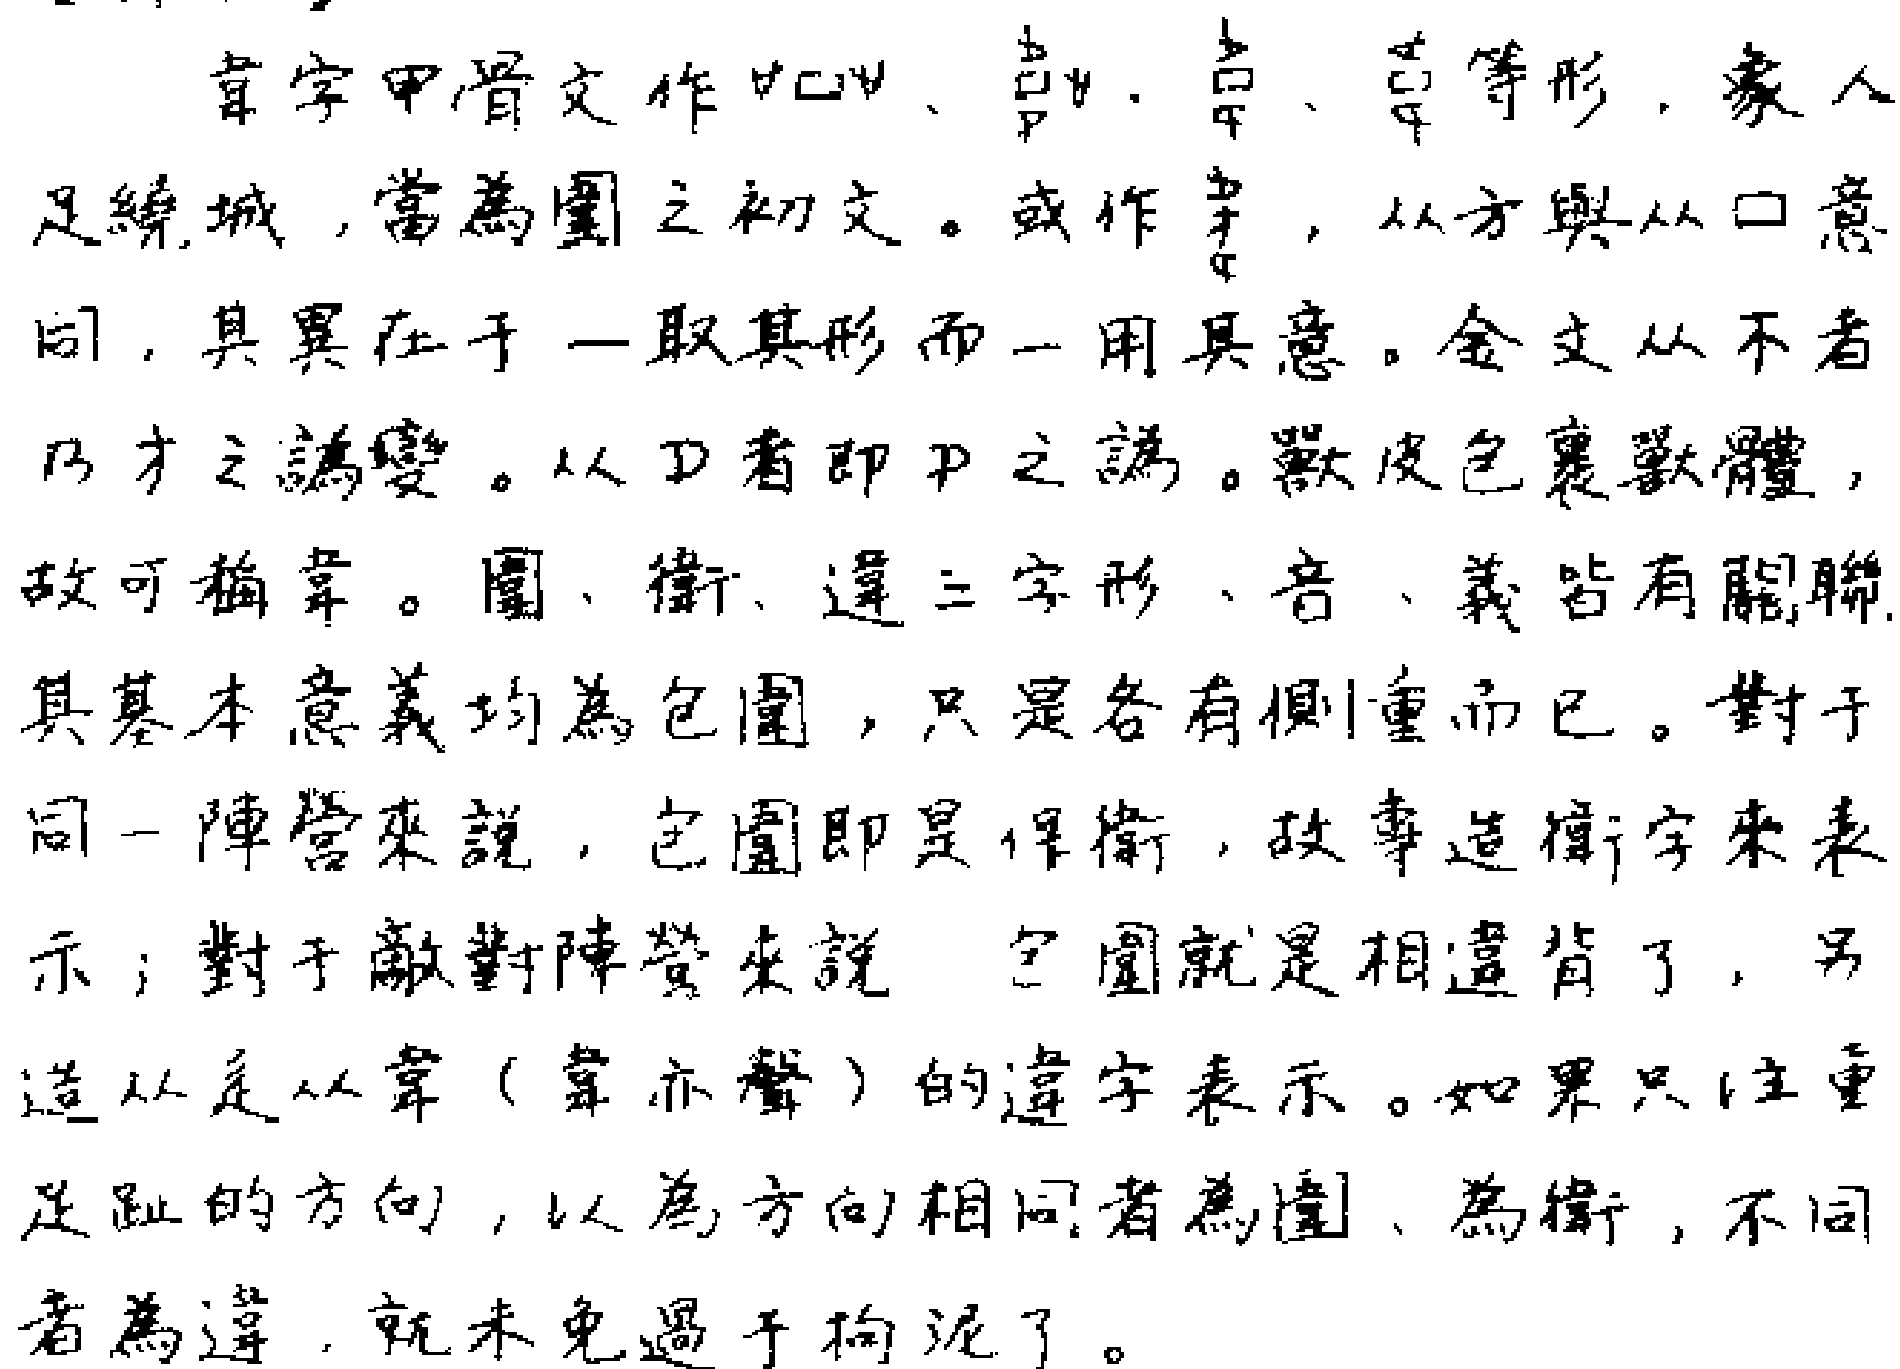 韋字甲骨文作、、、等形，象人
足繞城，當為圍之初文。或作，从方與从口意
同，其異在于一取其形而一用其意。金文从不者
乃才之譌變。从者即之譌。獸皮包裹獸體，
故可稱韋。圍、衛、違三字形、音、義皆有關聯，
其基本意義均為包圍，只是各有側重而已。對于
同一陣營來説，包圍即是保衛，故專造衛字來表
示；對于敵對陣營來説 包圍就是相違背了，另
造从辵从韋（韋亦聲）的違字表示。如果只注重
足趾的方向，以為方向相同者為圍、為衛，不同
者為違，就未免過于拘泥了。